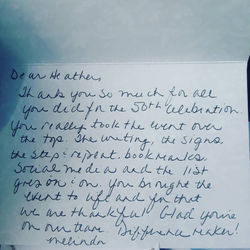 Dear Heather,
Thank you so much for all
you did for the 50th Celebration.
You really took the event over
the top. The writing, the signs,
the step & repeat, bookmarks,
Social media and the list
goes on & on. You brought the
event to life and for that
we are thankful. Glad you're
on our team. Difference Maker!
Melinda